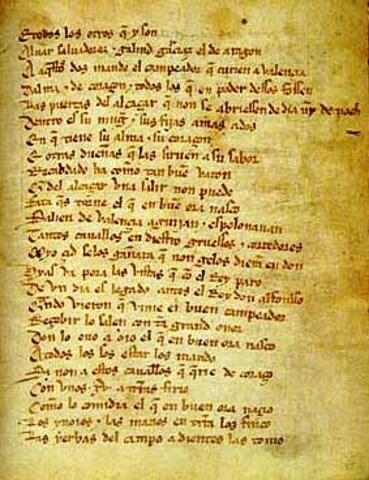 E todos los otros q̃ y son
Aluar saluadorez ⁊ galind garciaz el de aragon
A aq̃stos dos mando el campeador q̃ curien a valençia
Dalma ⁊ de coraçon ⁊ todos los q̃ en poder dessos fossen
Las puertas del alcaçar q̃ non se abriessen de dia nin de noch
Dentro es su mugier ⁊ sus fijas amas ados
En q̃ tiene su alma ⁊ su coraçon
E otras dueñas q̃ las siruen a su sabor
Recabdado ha como tan buẽ varon
Q̃ del alcaçar vna salir non puede
Fata q̃s torne el q̃ en buẽ ora naſco
Salien de valencia aguijan ⁊ espolonauan
Tantos cauallos en diestro gruessos ⁊ corredores
Myo çid selos gañara q̃ non gelos dierã en don
Hyas va pora las vistas q̃ cõ el Rey paro
De vn dia es legado antes el Rey don alfonsso
Q̃ndo vieron q̃ vinie el buen campeador
Reçebir lo salen con tã grand onor
Don lo ouo a oio el q̃ en buen ora naſco
A todos los sos estar los mando
Si non a estos caualleros q̃ q̃rie de coraçõ
Con vnos .xv. a tierras firio
Como lo comidia el q̃ en buen ora naçio
Los ynoios ⁊ las manos en trã los finco
Las yerbas del campo a dientes las tomo